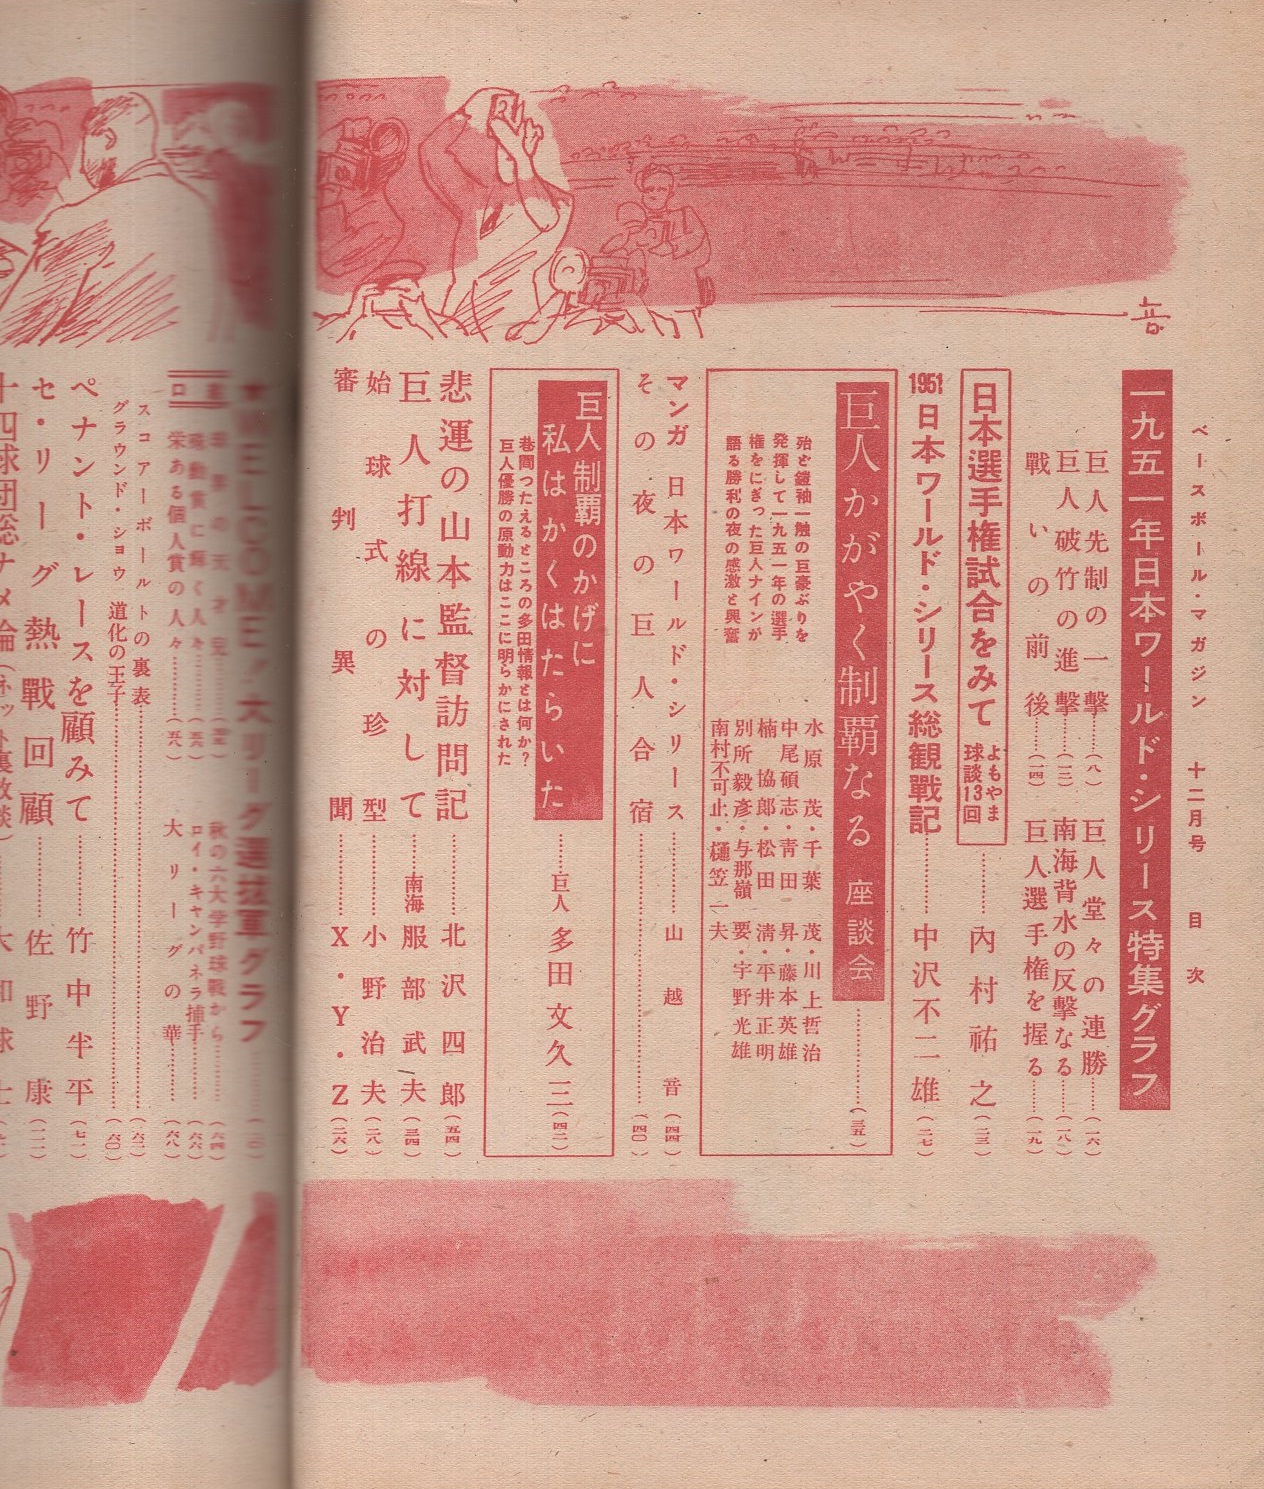 ベースボール・マガジン 十二月号 目次
一九五一年日本ワールド・シリース特集グラフ
巨人先制の一撃……(八)
巨人堂々の連勝……(一六)
巨人破竹の進撃……(一二)
南海背水の反撃なる……(一八)
戰いの前後……(一四)
巨人選手権を握る……(一九)
日本選手権試合をみて よもやま球談13回……內村祐之(二三)
1951日本ワールド・シリース総観戰記……中沢不二雄(二七)
巨人かがやく制覇なる 座談会……(三五)
殆ど鎧袖一触の巨豪ぶりを
発揮して一九五一年の選手
権をにぎった巨人ナインが
語る勝利の夜の感激と興奮
水原 茂・千葉 茂・川上哲治
中尾碩志・青田 昇・藤本英雄
楠 協郎・松田 清・平井正明
別所毅彦・与那嶺 要・宇野光雄
南村不可止・樋笠一夫
マンガ 日本ワールド・シリース……山越 音(四四)
その夜の巨人合宿……(四〇)
巨人制覇のかげに
私はかくはたらいた……巨人 多田文久三(四二)
巷間つたえるところの多田情報とは何か?
巨人優勝の原動力はここに明らかにされた
悲運の山本監督訪問記……北沢四郎(五四)
巨人打線に対して……南海 服部武夫(三四)
始球式の珍型……小野治夫(二八)
審判異聞……X・Y・Z(二六)
★WELCOME!大リーグ選抜軍グラフ
秋の六大学野球戦から……(六四)
感動賞に輝く人々……(五六)
ロイ・キャンパネラ捕手……(六六)
栄ある個人賞の人々……(五八)
大リーグの華……(六八)
スコアーボールトの裏表……(六二)
グラウンド・ショウ 道化の王子……(六〇)
ペナント・レースを顧みて……竹中半平(七一)
セ・リーグ熱戰回顧……佐野康
十四球団総ナメ論